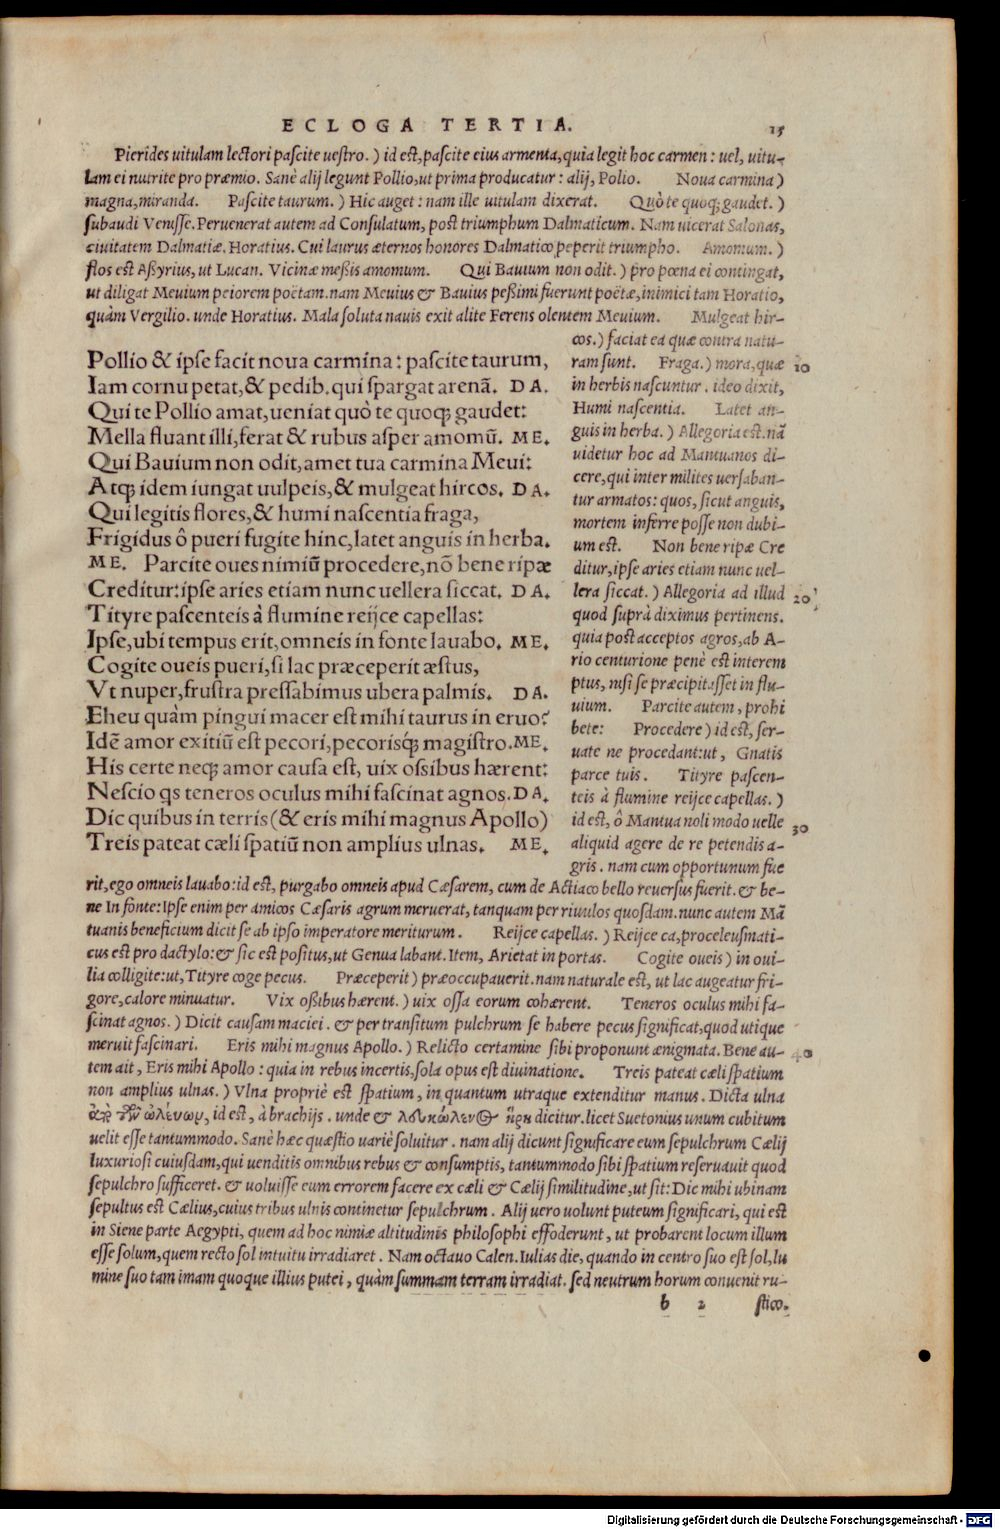 ECLOGA TERTIA. 15
Pierides uitulam lectori pascite uestro.) id est, pascite eius armenta, quia legit hoc carmen: uel, uitu-
lam ei nutrite pro præmio. Sanè alij legunt Pollio, ut prima producatur: alij, Polio. Noua carmina)
magna, miranda. Pascite taurum.) Hic auget: nam ille uitulam dixerat. Quò te quoq; gaudet.)
subaudi Venisse. Peruenerat autem ad Consulatum, post triumphum Dalmaticum. Nam uicerat Salonas,
ciuitatem Dalmatiæ. Horatius. Cui laurus æternos honores Dalmatico peperit triumpho. Amomum.)
flos est Aßyrius, ut Lucan. Vicinæ meßis amomum. Qui Bauium non odit.) pro pœna ei contingat,
ut diligat Meuium peiorem poëtam. nam Meuius & Bauius peßimi fuerunt poëtæ, inimici tam Horatio,
quàm Vergilio. unde Horatius. Mala soluta nauis exit alite Ferens olentem Meuium. Mulgeat hir-
Pollio & ipse facit noua carmina: pascite taurum,
Iam cornu petat, & pedib. qui spargat arenã. DA.
Qui te Pollio amat, ueniat quò te quoq; gaudet:
Mella fluant illi, ferat & rubus asper amomũ. ME.
Qui Bauium non odit, amet tua carmina Meui:
Atq; idem iungat uulpeis, & mulgeat hircos. DA.
Qui legitis flores, & humi nascentia fraga,
Frigidus ô pueri fugite hinc, latet anguis in herba.
ME. Parcite oues nimiũ procedere, nõ bene ripæ
Creditur: ipse aries etiam nunc uellera siccat. DA.
Tityre pascenteis à flumine reijce capellas:
Ipse, ubi tempus erit, omneis in fonte lauabo. ME.
Cogite oueis pueri, si lac præceperit æstus,
Vt nuper, frustra pressabimus ubera palmis. DA.
Eheu quàm pingui macer est mihi taurus in eruo?
Idẽ amor exitiũ est pecori, pecorisq́; magistro. ME.
His certe neq; amor causa est, uix ossibus hærent:
Nescio qs teneros oculus mihi fascinat agnos. DA.
Dic quibus in terris (& eris mihi magnus Apollo)
Treis pateat cæli spatiũ non amplius ulnas. ME.
cos.) faciat ea quæ contra natu-
ram sunt. Fraga.) mora, quæ 10
in herbis nascuntur. ideo dixit,
Humi nascentia. Latet an-
guis in herba.) Allegoria est. nã
uidetur hoc ad Mantuanos di-
cere, qui inter milites uersaban-
tur armatos: quos, sicut anguis,
mortem inferre posse non dubi-
um est. Non bene ripæ Cre
ditur, ipse aries etiam nunc uel-
lera siccat.) Allegoria ad illud 20
quod suprà diximus pertinens.
quia post acceptos agros, ab A-
rio centurione penè est interem
ptus, nisi se præcipitasset in flu-
uium. Parcite autem, prohi
bete: Procedere) id est, ser-
uate ne procedant: ut, Gnatis
parce tuis. Tityre pascen-
teis à flumine reijce capellas.)
id est, ô Mantua noli modo uelle 30
aliquid agere de re petendis a-
gris. nam cum opportunum fue
rit, ego omneis lauabo: id est, purgabo omneis apud Cæsarem, cum de Actiaco bello reuersus fuerit. & be-
ne In fonte: Ipse enim per amicos Cæsaris agrum meruerat, tanquam per riuulos quosdam. nunc autem Mã
tuanis beneficium dicit se ab ipso imperatore meriturum. Reijce capellas.) Reijce ca, proceleusmati-
cus est pro dactylo: & sic est positus, ut Genua labant. Item, Arietat in portas. Cogite oueis) in oui-
lia colligite: ut, Tityre coge pecus. Præceperit) præoccupauerit. nam naturale est, ut lac augeatur fri-
gore, calore minuatur. Vix oßibus hærent.) uix ossa eorum cohærent. Teneros oculus mihi fa-
scinat agnos.) Dicit causam maciei. & per transitum pulchrum se habere pecus significat, quod utique
meruit fascinari. Eris mihi magnus Apollo.) Relicto certamine sibi proponunt ænigmata. Bene au- 40
tem ait, Eris mihi Apollo: quia in rebus incertis, sola opus est diuinatione. Treis pateat cæli spatium
non amplius ulnas.) Vlna propriè est spatium, in quantum utraque extenditur manus. Dicta ulna
ἀπὸ τῶν ὠλένων, id est, à brachijs. unde & λευκώλενος ἥρη dicitur. licet Suetonius unum cubitum
uelit esse tantummodo. Sanè hæc quæstio uariè soluitur. nam alij dicunt significare eum sepulchrum Cælij
luxuriosi cuiusdam, qui uenditis omnibus rebus & consumptis, tantummodo sibi spatium reseruauit quod
sepulchro sufficeret. & uoluisse eum errorem facere ex cæli & Cælij similitudine, ut sit: Dic mihi ubinam
sepultus est Cælius, cuius tribus ulnis continetur sepulchrum. Alij uero uolunt puteum significari, qui est
in Siene parte Aegypti, quem ad hoc nimiæ altitudinis philosophi effoderunt, ut probarent locum illum
esse solum, quem recto sol intuitu irradiaret. Nam octauo Calen. Iulias die, quando in centro suo est sol, lu
mine suo tam imam quoque illius putei, quàm summam terram irradiat. sed neutrum horum conuenit ru-
b 2 stico.
Digitalisierung gefördert durch die Deutsche Forschungsgemeinschaft - DFG